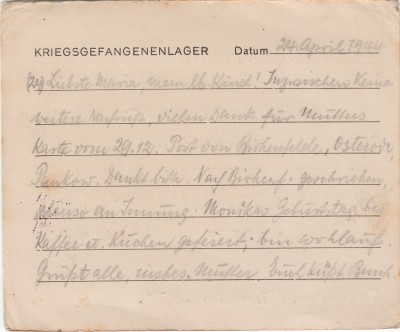 KRIEGSGEFANGENENLAGER Datum 24. April 1944
Liebste Maria, mein lb. Kind! Inzwischen keine
weitere Nachricht, vielen Dank für Mutters
Karte vom 29.12. Post von Birkenfelde, Osterode,
Pankow. Dankt bitte. Nach Birkenf. geschrieben,
an Innung. Monikas Geburtstag bei
Kaffee u. Kuchen gefeiert; bin wohlauf.
Grüßt alle, insbes. Mutter. Euch küßt